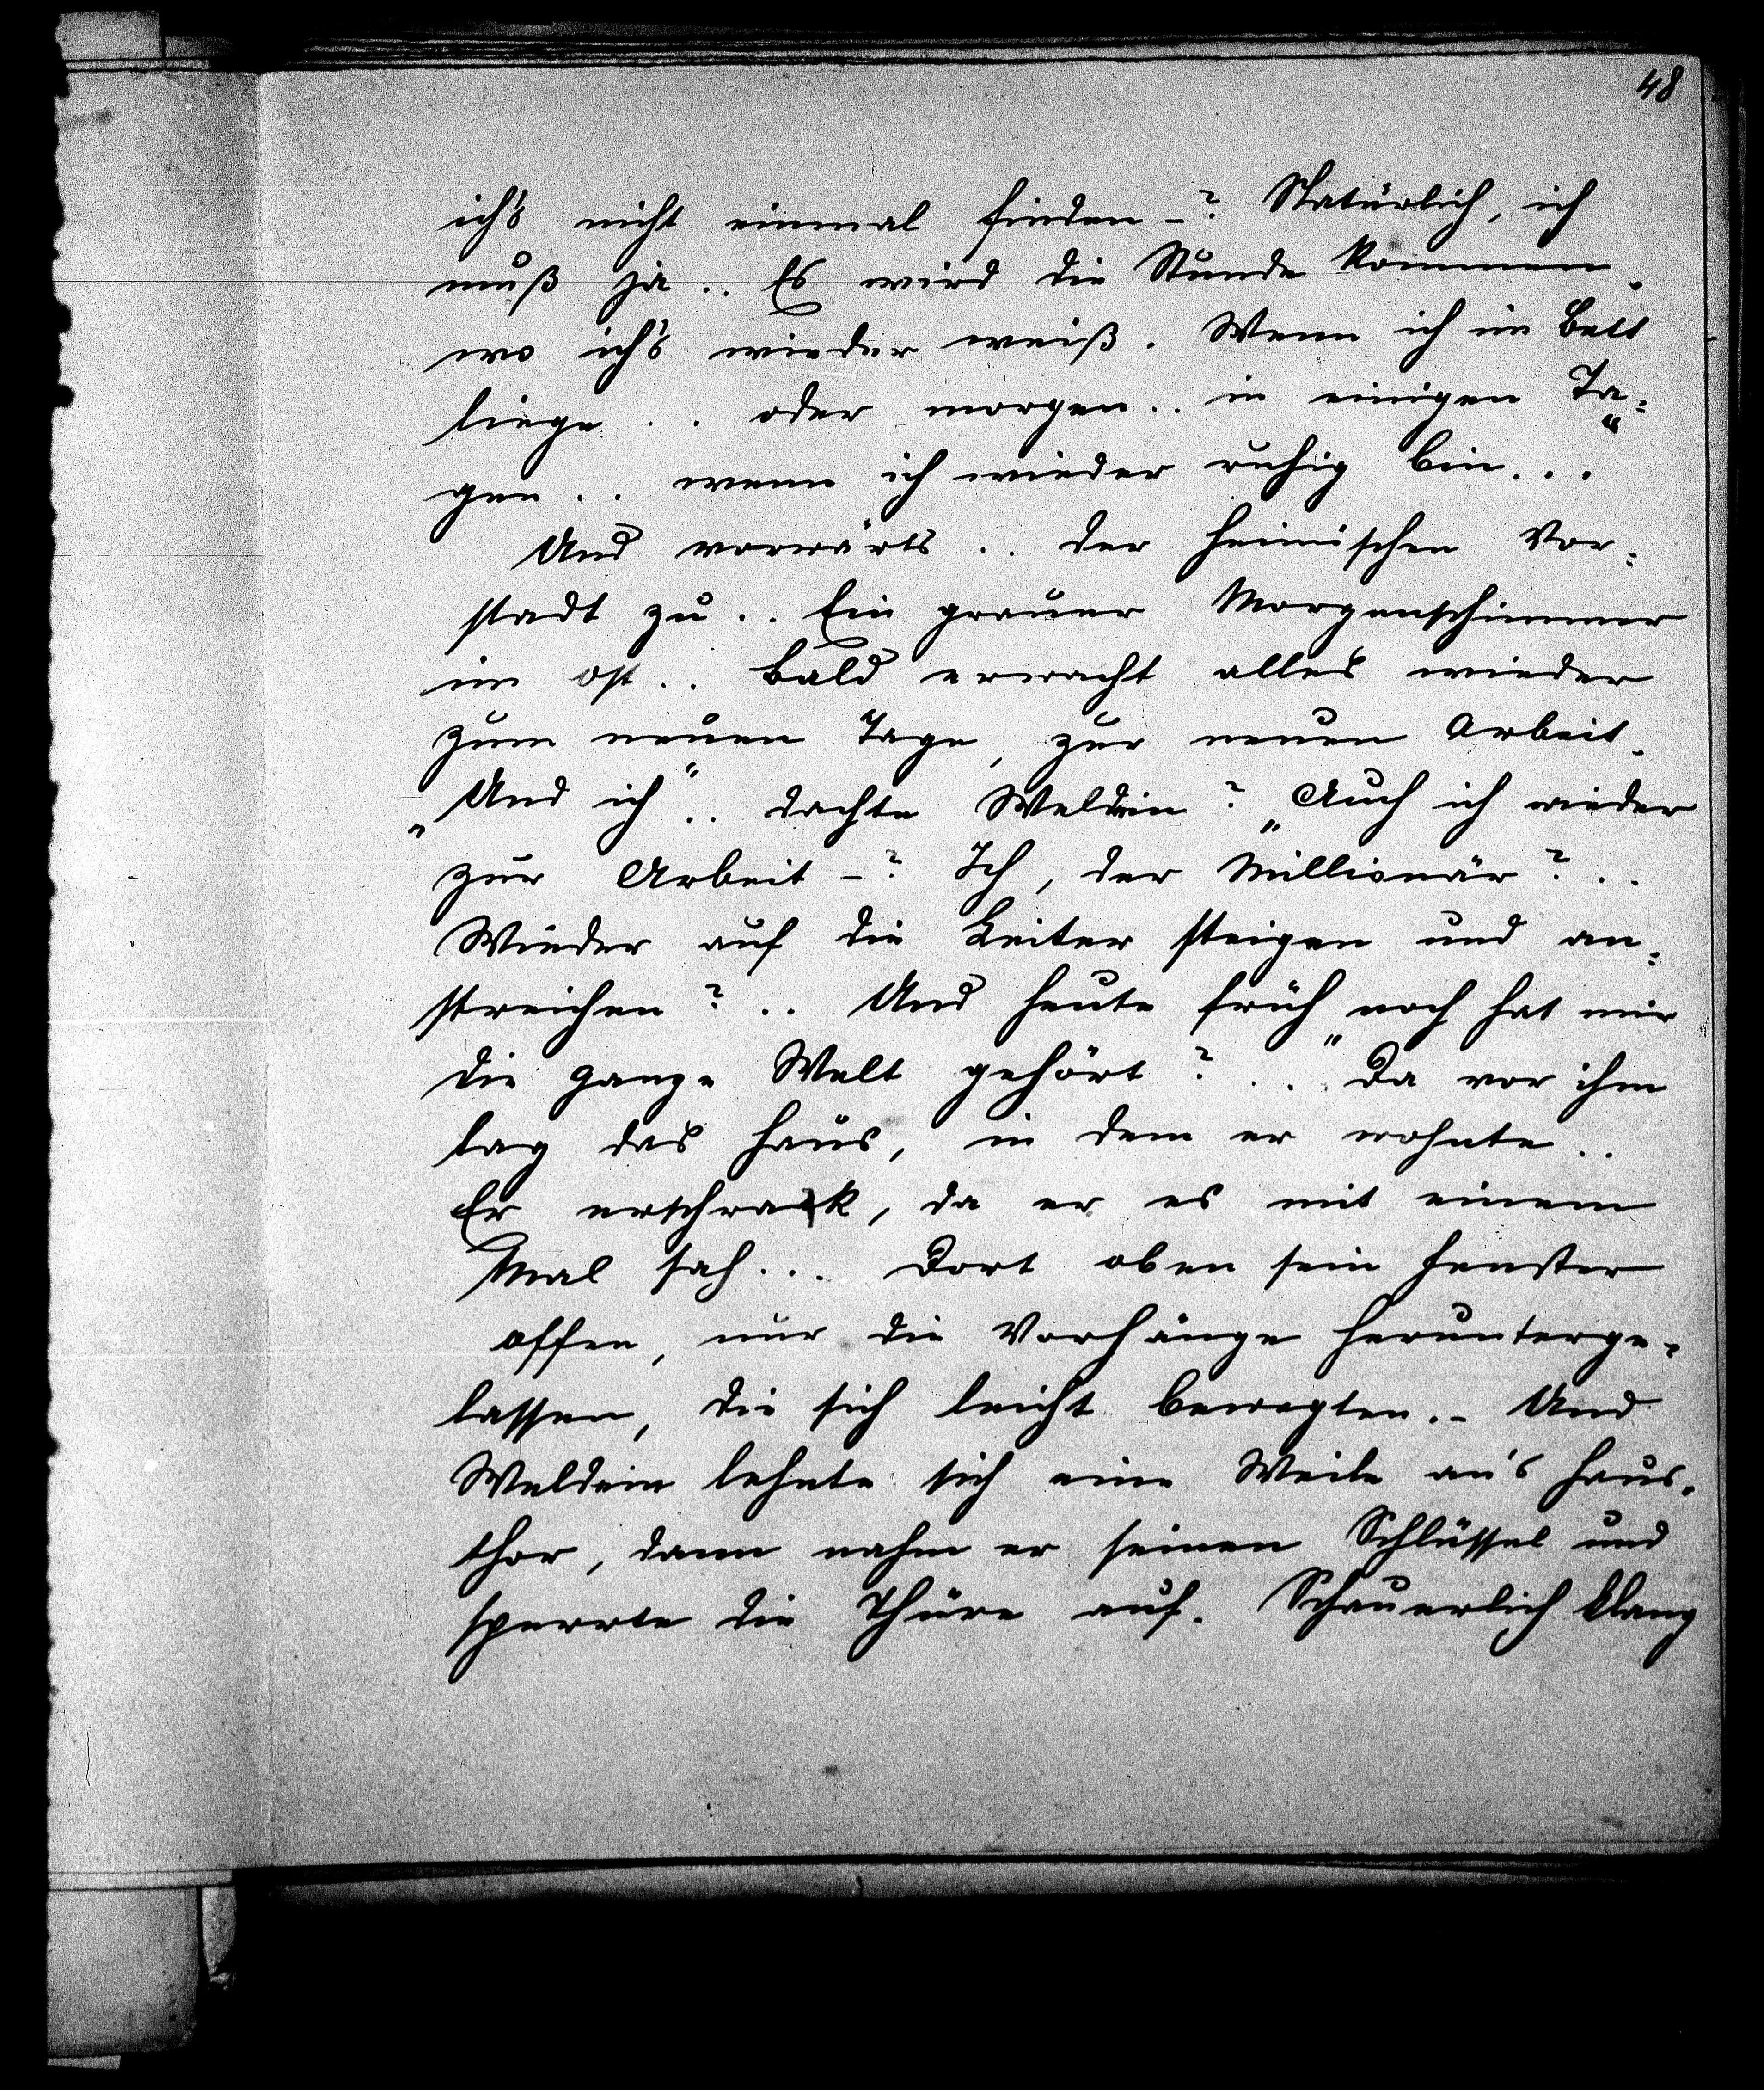 48
ich's nicht einmal finden –? Natürlich, ich
muß ja .. Es wird die Stunde kommen,
wo ich's wieder weiß. Wenn ich im Bett
liege .. oder morgen .. in einigen Ta=
gen .. wenn ich wieder ruhig bin ...“
Und vorwärts .. der heimischen Vor=
stadt zu .. Ein grauer Morgenschimmer
im Ost .. Bald erwacht alles wieder
zum neuen Tage, zur neuen Arbeit.
„Und ich“ .. dachte Weldein? „Auch ich wieder
zur Arbeit –? Ich, der Millionär? ..
Wieder auf die Leiter steigen und an=
streichen? .. Und heute früh noch hat mir
die ganze Welt gehört? ..“ Da vor ihm
lag das Haus, in dem er wohnte ..
Er erschrak, da er es mit einem
Mal sah ... Dort oben sein Fenster
offen, nur die Vorhänge herunterge=
lassen, die sich leicht bewegten. – Und
Weldein lehnte sich eine Weile an's Haus=
thor, dann nahm er seinen Schlüssel und
sperrte die Thüre auf. Schauerlich klang